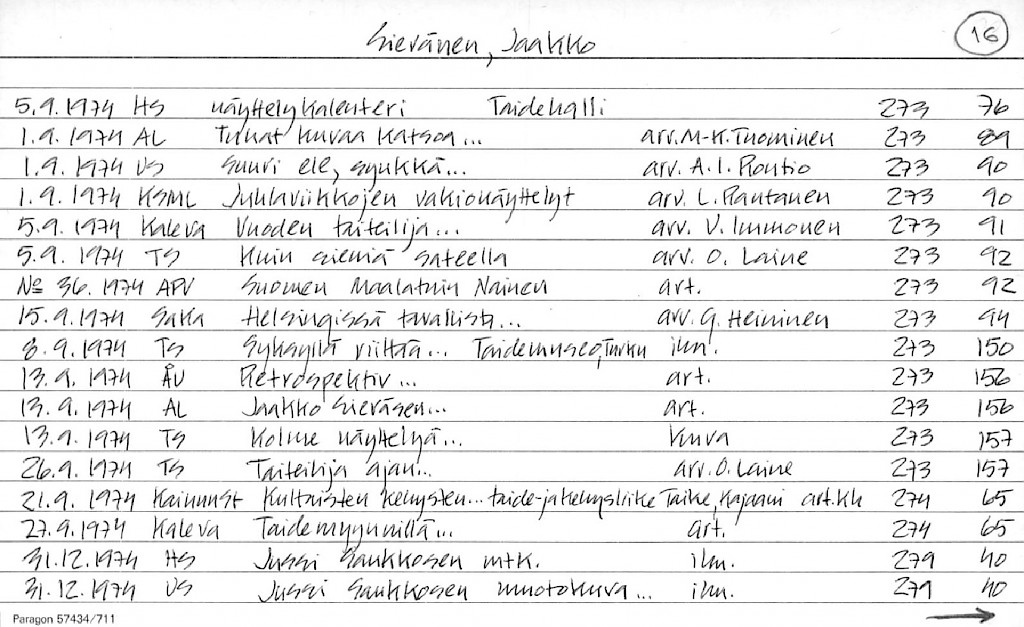 Sievänen, Jaakko
16
5.9.1974 HS näyttelykalenteri Taidehalli 273 76
1.9.1974 AL Tuhat kuvaa katsoa... arv. M-K. Tuominen 273 89
1.9.1974 US Suuri ele, synkkä... arv. A.I. Routio 273 90
1.9.1974 KSML Juhlaviikkojen vakionäyttelyt arv. L. Rautanen 273 90
5.9.1974 Kaleva Vuoden taiteilija... arv. V. Immonen 273 91
5.9.1974 TS Kuin sieniä sateella arv. O. Laine 273 92
№ 36.1974 APU Suomen Maalatuin Nainen art. 273 92
15.9.1974 SaKa Helsingissä tavallista... arv. G. Heininen 273 94
8.9.1974 TS Syksyiltä viittaa... Taidemuseo, Turku ilm. 273 150
13.9.1974 ÅU Retrospektiv... art. 273 156
13.9.1974 AL Jaakko Sieväsen... art. 273 156
13.9.1974 TS Kolme näyttelyä... kuva 273 157
26.9.1974 TS Taiteilija ajan... arv. O. Laine 273 157
21.9.1974 KainuunS Kultaisten kehysten... taide-ja kehysliike Taike, Kajaani art.kk 274 65
27.9.1974 Kaleva Taidemyynnillä... art. 274 65
31.12.1974 HS Jussi Saukkosen mtk. ilm. 279 40
31.12.1974 US Jussi Saukkosen muotokuva... ilm. 279 40
Paragon 57434/711